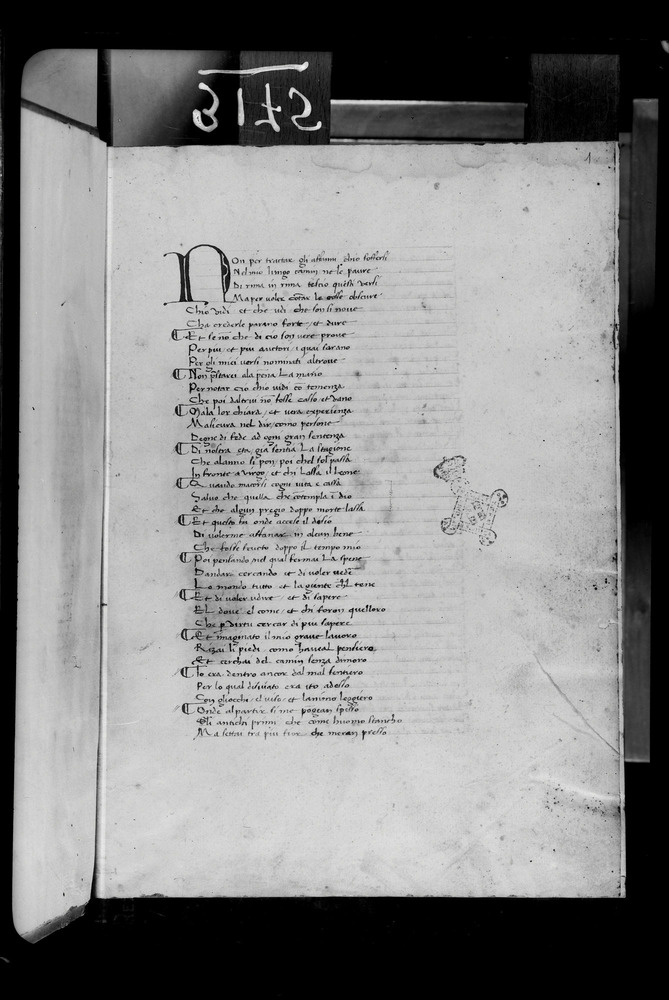 5716
1
Non per tractar gli affanni chio soffersi
Nel mio lungo camin ne le paure
Di rima in rima tesso questi versi
Ma per voler cotar le cosse obscure
Chio vidi et che udi che son si nove
Cha crederle parano forte et dure
Et se no che di cio son vere prove
Per piu et piu auctori i quai sarano
Per gli miei versi nominati altrove
Non pitarei ala pena La mano
Per notar cio chio vidi co temenza
Che poi daltrui no fosse casso et vano
Mala lor chiara et vera experienza
Masicura nel dir como persone
Degne di fede ad ogni gran sentenza
Di nostra eta gia sentia La stagione
Che alanno si pon poi chel sol passa
In fronte a virgo et chi Lassa il Leone
Quando macorsi cogni vita e cassa
Salvo che quella che cotempla i dio
Et che alcun pregio doppo morte lassa
Et questo fu onde accese il desio
Di volerme affanar in alcun bene
Che fosse fructo doppo il tempo mio
Poi pensando nel qual fermai La spene
Dandare cercando et di voler vede
Lo mondo tutto et la gente chl tene
Et di voler udire et di sapere
EL dove el come et chi foron quelloro
Che p virtu cercar di piu sapere
Et imaginato il mio grave lavoro
Rizai li piedi como haveal pensiero
Et cerchai del camin senza dimoro
Io era dentro ancor dal mal sentiero
Per lo qual disviato era ito adesso
Con gliocchi el viso et lanimo leggiero
Onde al partir si me pogean spesso
Gli antichi primi che come huomo stancho
Ma settai tra piu fior che meran presso